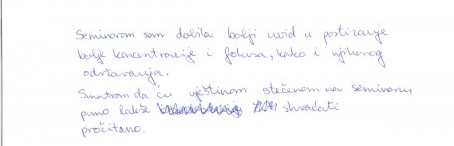 Seminarom sam dobila bolji uvid u postizanje
bolje koncentracije i fokusa, kako i njihovog
održavanja.
Smatram da ću vještinom stečenom na seminaru
puno lakše shvaćati
pročitano.